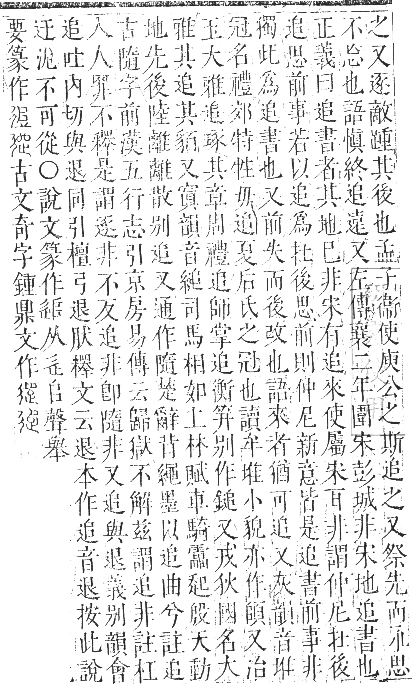 之又逐敵踵其後也孟子衞使庾公之斯追之又祭先而不思
不忘也語愼終追遠又左傳襄二年圍宋彭城非宋地追書也
正義曰追書者其地巳非宋有追來使屬宋耳非謂仲尼在後
追思前事若以追爲在後思前則仲尼新意皆是追書前事非
獨此爲追書也又前失而後改也語來者猶可追又灰韻音堆
冠名禮郊特牲毋追夏后氏之冠也讀牟堆小貌亦作䫋又治
玉大雅追琢其章周禮追師掌追衡筓别作鎚又戎狄國名大
雅其追其貊又寘韻音縋司馬相如上林賦車騎靁起殷天動
地先後陸離離散别追又通作隨楚辭背繩墨以追曲兮註追
古隨字前漢五行志引京房易傳云歸獄不解兹謂追非註杠
人人罪不釋是謂遂非不友追非卽隨非又追與退義别韻會
追吐内切與退同引檀弓退然釋文云退本作追音退按此說
迂泥不可從〇說文篆作追从辵𠂤聲舉
要篆作 古文奇字鍾鼎文作